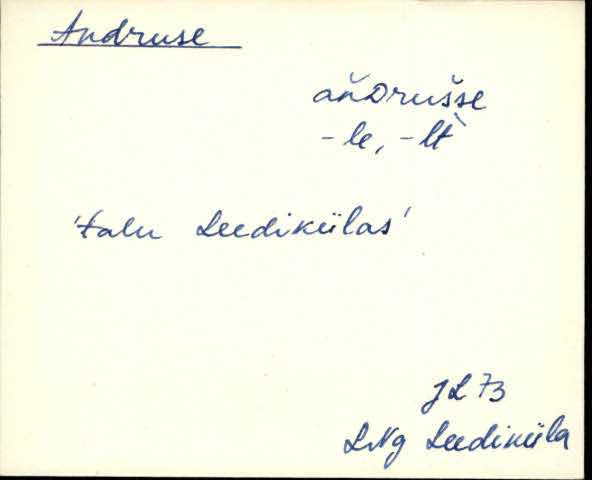 Andruse
aňDrušse
-le, -lt̀
'talu Leediküla­s'
JL 73
LNg Leediküla